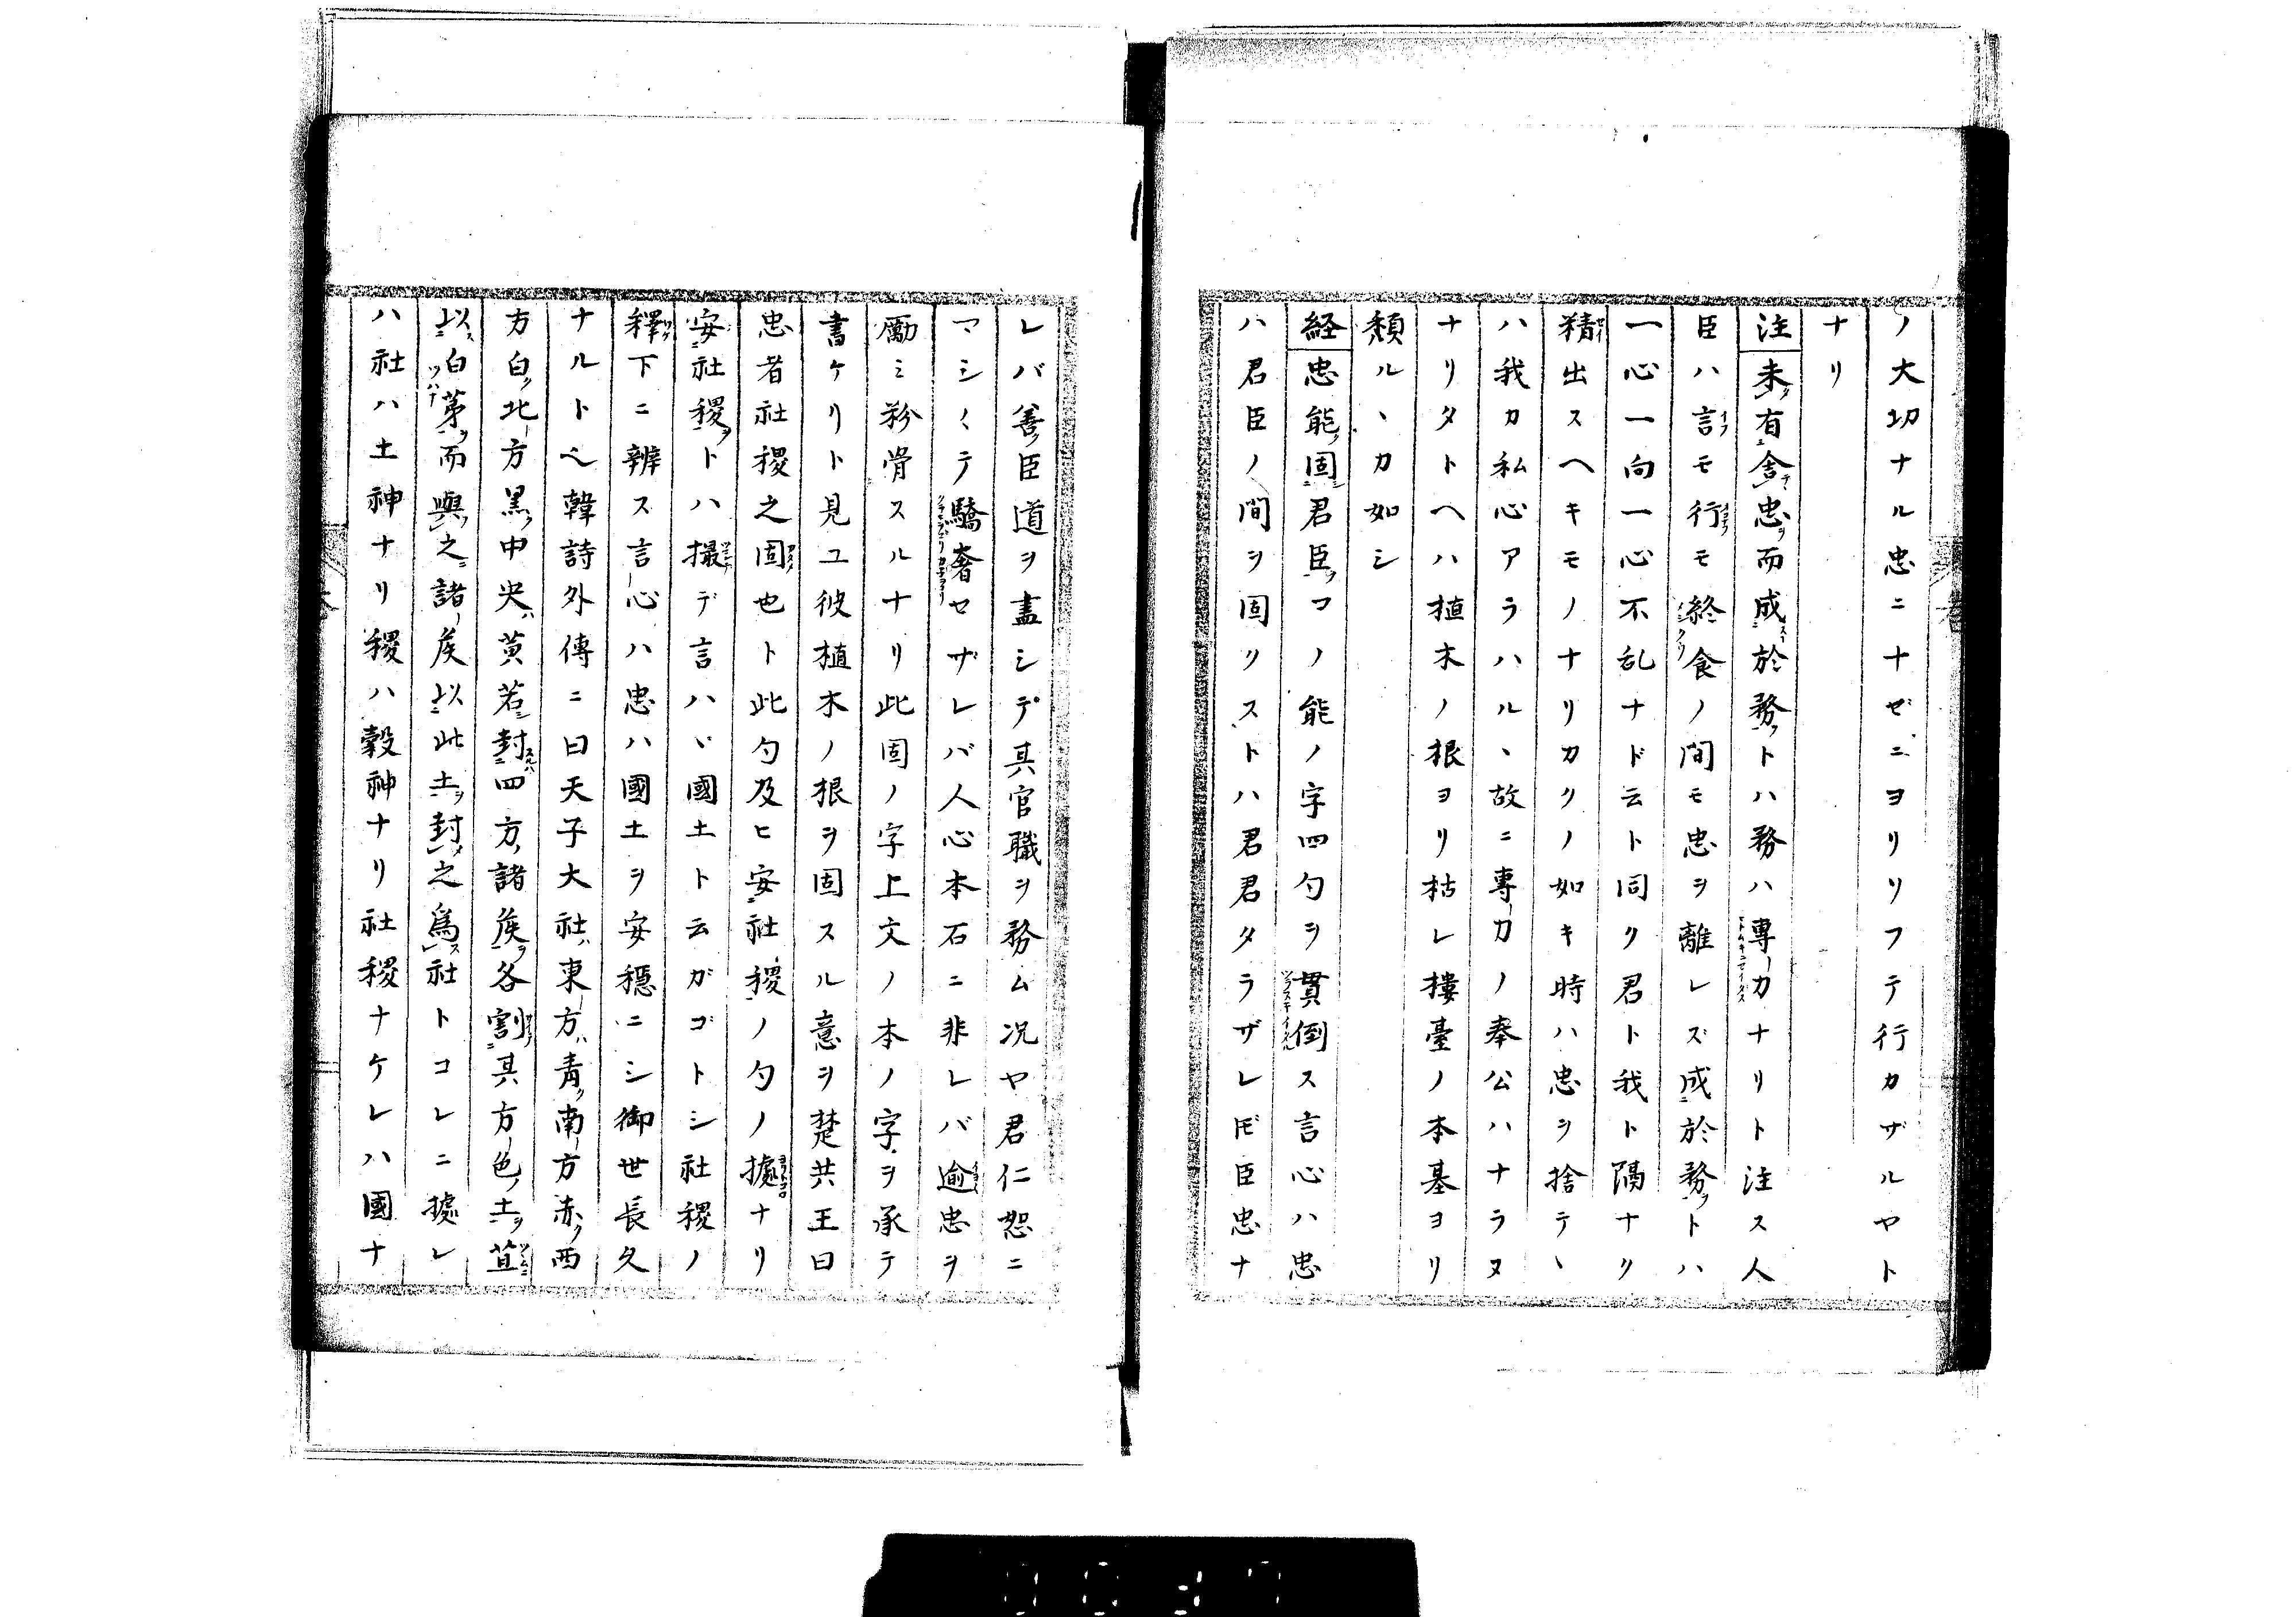 ノ大功ナル忠ニナゼニヨリソフテ行カザルヤト
ナリ
注未有舎忠而成於務トハ務ハ專一カナリト注ス人
臣ハ言モ行モ終食ノ間モ忠ヲ離レズ成於務トハ
一心一向一心不乱ナド云ト同ク君ト我ト隔ナク
精出スヘキモノナリカクノ如キ時ハ忠ヲ捨テヽ
ハ我カ私心アラハルヽ故ニ專一カノ奉公ハナラヌ
ナリタトヘハ植木ノ根ヨリ枯レ樓臺ノ本基ヨリ
頽ルヽカ如シ
経忠能固君臣コノ能ノ字四句ヲ貫倒ス言心ハ忠
ハ君臣ノ間ヲ固クストハ君君タラザレ𪜈臣忠ナ
レバ善臣道ヲ盡シテ其官職ヲ務ム况ヤ君仁恕ニ
マシ〱テ驕奢セザレバ人心本石ニ非レバ逾忠ヲ
勵ミ粉骨スルナリ此固ノ字上文ノ本ノ字ヲ承テ
書ケリト見ユ彼植木ノ根ヲ固スル意ヲ楚共王曰
忠者社稷之固也ト此句及ヒ安社稷ノ句ノ據ナリ
安社稷トハ撮デ言ハヾ國土ト云ガゴトシ社稷ノ
釋下ニ辨ス言心ハ忠ハ國土ヲ安穏ニシ御世長久
ナルトベ韓詩外傳ニ曰天子大社東方青南方赤西
方白北方黒中央黄若封四方諸矦各割其方色土苴
以白茅而與之諸矦以此土封之爲社トコレニ據レ
ハ社ハ土神ナリ稷ハ穀神ナリ社稷ナケレハ國ナ